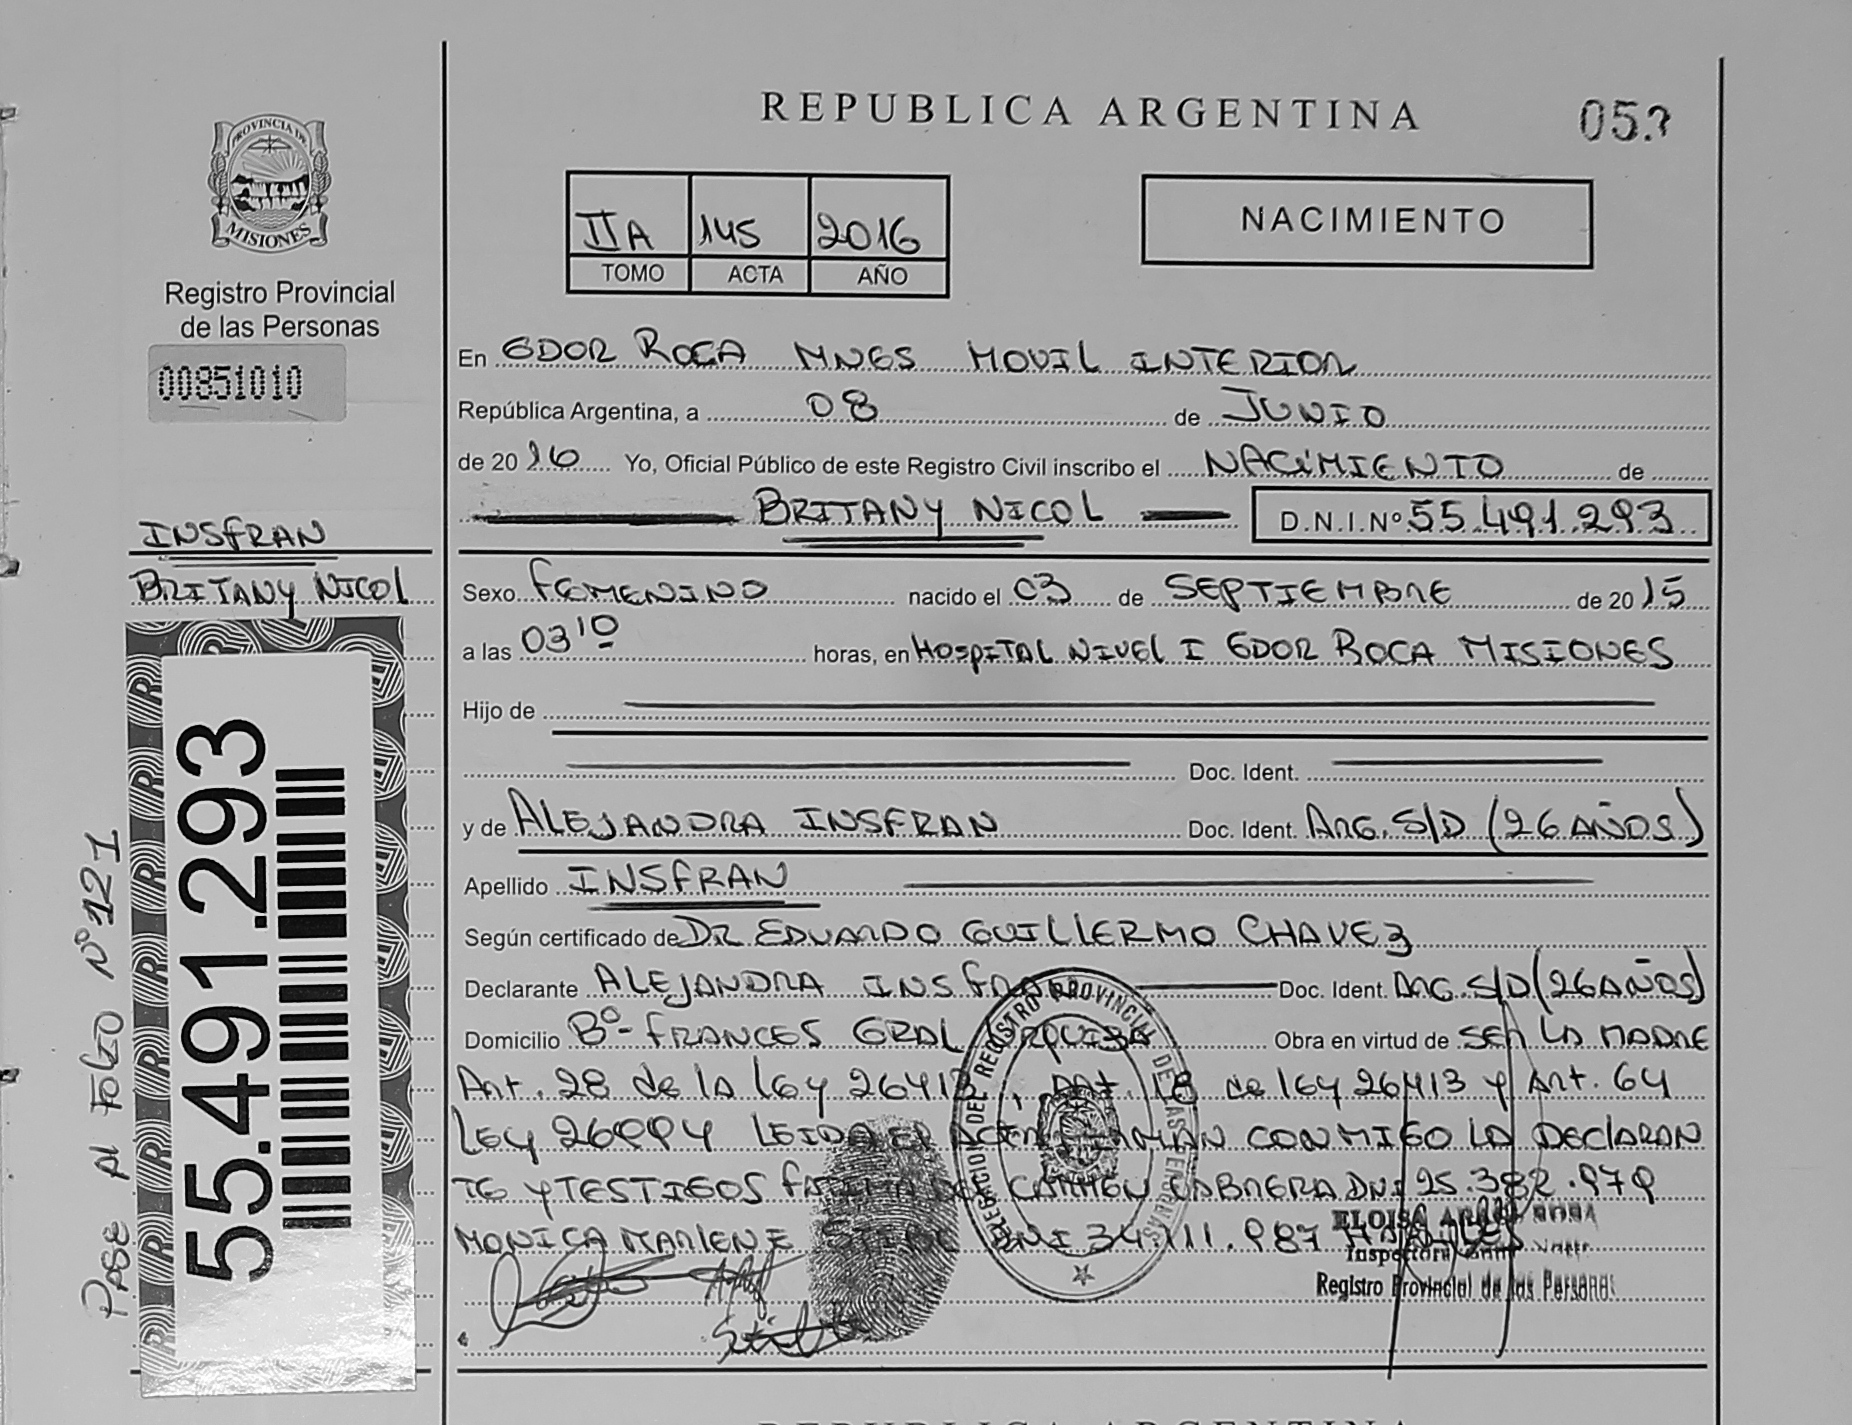 REPUBLICA ARGENTINA
PROVINCIA DE
MISIONES
Registro Provincial
de las Personas
00851010
NACIMIENTO
IIA 145 2016
TOMO ACTA AÑO
En GDOR ROCA MNES MOVIL INTERIOR
República Argentina, a 08 de JUNIO
de 20 16 Yo, Oficial Público de este Registro Civil inscribo el NACIMIENTO de
BRITANY NICOL D.N.I.Nº 55.491.293
INSFRAN
BRITANY NICOL
Sexo FEMENINO nacido el 03 de SEPTIEMBRE de 20 15
a las 03 10 horas, en HOSPITAL NIVEL I GDOR ROCA MISIONES
Hijo de
Doc. Ident.
y de ALEJANDRA INSFRAN Doc. Ident. ARG. S/D (26 AÑOS)
Apellido INSFRAN
Según certificado de DR EDUARDO GUILLERMO CHAVEZ
Declarante ALEJANDRA INSFRAN Doc. Ident. ARG. S/D (26 AÑOS)
Domicilio Bº- FRANCES GRAL URQUIZA Obra en virtud de SER LA MADRE
Art. 28 de la ley 26413, Art. 18 de ley 26413 y Art. 64
LEY 26994 LEIDA EL ACTA FIRMAN CONMIGO LA DECLARAN
TE Y TESTIGOS DEL CARMEN CABRERA DNI 25.382.979
MONICA MARLENE DNI 34.111.987
ELOISA
Inspectora
Registro Provincial de las Personas
DELEGACION DEL REGISTRO PROVINCIAL DE LAS PERSONAS
55.491.293
PASE AL FOLIO Nº 121
REPUBLICA ARGENTINA